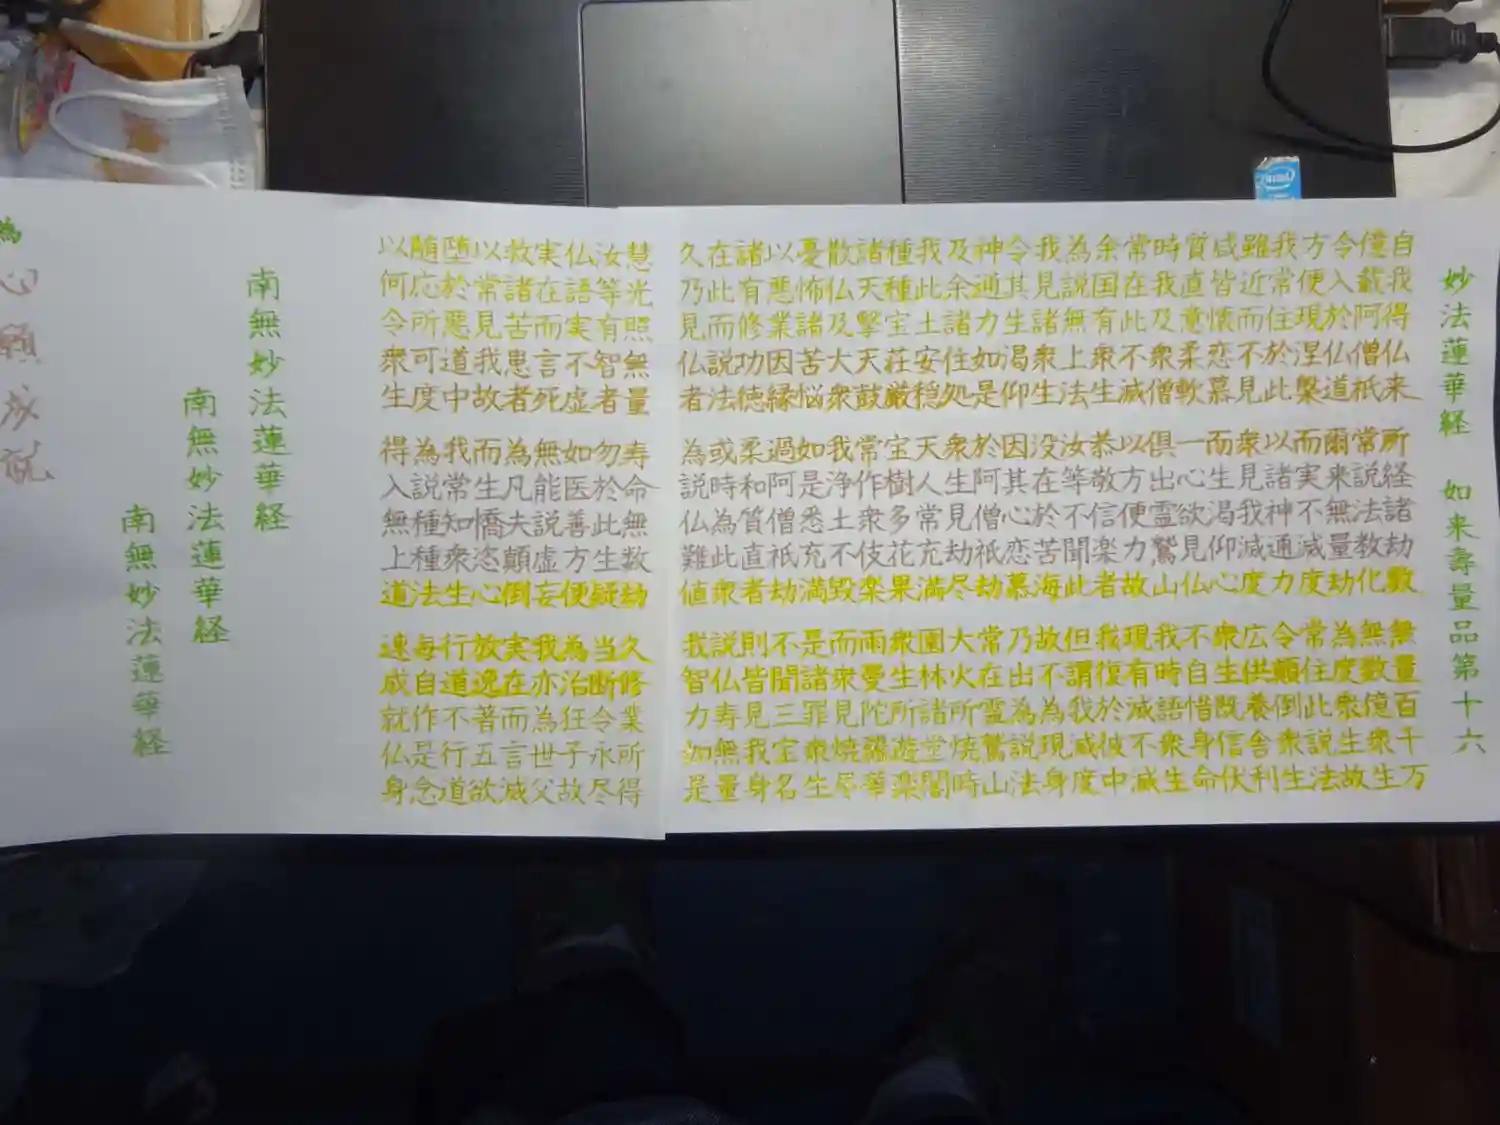 妙法蓮華経 如来壽量品第十六
自我得仏来 所経諸劫数 無量百千万
億載阿僧祇 常説法教化 無数億衆生
令入於仏道 爾来無量劫 為度衆生故
方便現涅槃 而実不滅度 常住此説法
我常住於此 以諸神通力 令顛倒衆生
雖近而不見 衆見我滅度 広供養舎利
咸皆懐恋慕 而生渇仰心 衆生既信伏
質直意柔軟 一心欲見仏 不自惜身命
時我及衆僧 俱出霊鷲山 我時語衆生
常在此不滅 以方便力故 現有滅不滅
余国有衆生 恭敬信楽者 我復於彼中
為説無上法 汝等不聞此 但謂我滅度
我見諸衆生 没在於苦海 故不為現身
令其生渇仰 因其心恋慕 乃出為説法
神通力如是 於阿僧祇劫 常在霊鷲山
及余諸住処 衆生見劫尽 大火所焼時
我此土安穏 天人常充満 園林諸堂閣
種種宝荘厳 宝樹多花果 衆生所遊楽
諸天撃天鼓 常作衆伎楽 雨曼陀羅華
散仏及大衆 我浄土不毀 而衆見焼尽
憂怖諸苦悩 如是悉充満 是諸罪衆生
以悪業因縁 過阿僧祇劫 不聞三宝名
諸有修功徳 柔和質直者 則皆見我身
在此而説法 或時為此衆 説仏寿無量
久乃見仏者 為説仏難値 我智力如是
慧光照無量 寿命無数劫 久修業所得
汝等有智者 勿於此生疑 当断令永尽
仏語実不虚 如医善方便 為治狂子故
実在而言死 無能説虚妄 我亦為世父
救諸苦患者 為凡夫顛倒 実在而言滅
以常見我故 而生憍恣心 放逸著五欲
堕於悪道中 我常知衆生 行道不行道
随応所可度 為説種種法 毎自作是念
以何令衆生 得入無上道 速成就仏身
南無妙法蓮華経
南無妙法蓮華経
南無妙法蓮華経
為 心願成就
intel